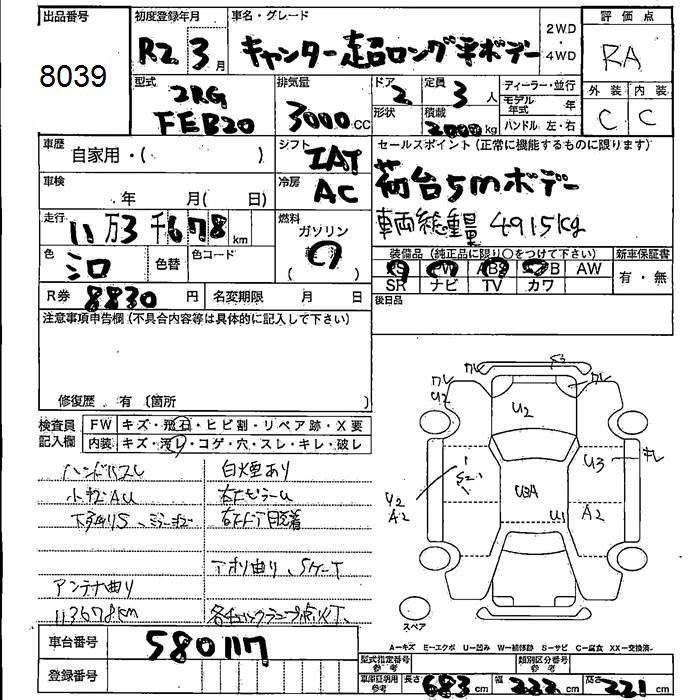 出品番号
8039
初度登録年月
R2 3月
車名・グレード
キャンター超ロング平ボデー
2WD
・
4WD
評価点
RA
型式
2RG
FEB20
排気量
3000CC
ドア
2
定員
3人
形状
積載
2000kg
ディーラー・並行
モデル年式 年
ハンドル 左・右
外装 内装
C C
車歴
自家用・( )
シフト
IAT
セールスポイント(正常に機能するものに限ります)
荷台5mボデー
車両総重量 4915kg
車検
年 月( 日)
冷房
AC
走行
11万3千678km
燃料
ガソリン
( )
色
シロ
色替
色コード
装備品(純正品に限り○をつけて下さい)
AW
SR ナビ TV カワ
新車保証書
有・無
R券
8830円
名変期限 月 日
後日品
注意事項申告欄(不具合内容等は具体的に記入して下さい)
修復歴 有 (箇所 )
検査員記入欄
FW キズ・飛石・ヒビ割・リペア跡・X要
内装 キズ・汚レ・コゲ・穴・スレ・キレ・破レ
ハンドルスレ
白煙あり
アンテナ曲り
113678km
各チェックランプ点灯
ワレ
U2
S3
ワレ
U2
U3
U3A
U1
A2
U2
A2
スペア
A=キズ E=エクボ U=凹み W=補修跡 S=サビ C=腐食 XX=交換済
車台番号
580117
登録番号
型式指定番号 参考
類別区分番号 参考
車庫証明用 参考
長さ 683cm 幅 222cm 高さ 221cm